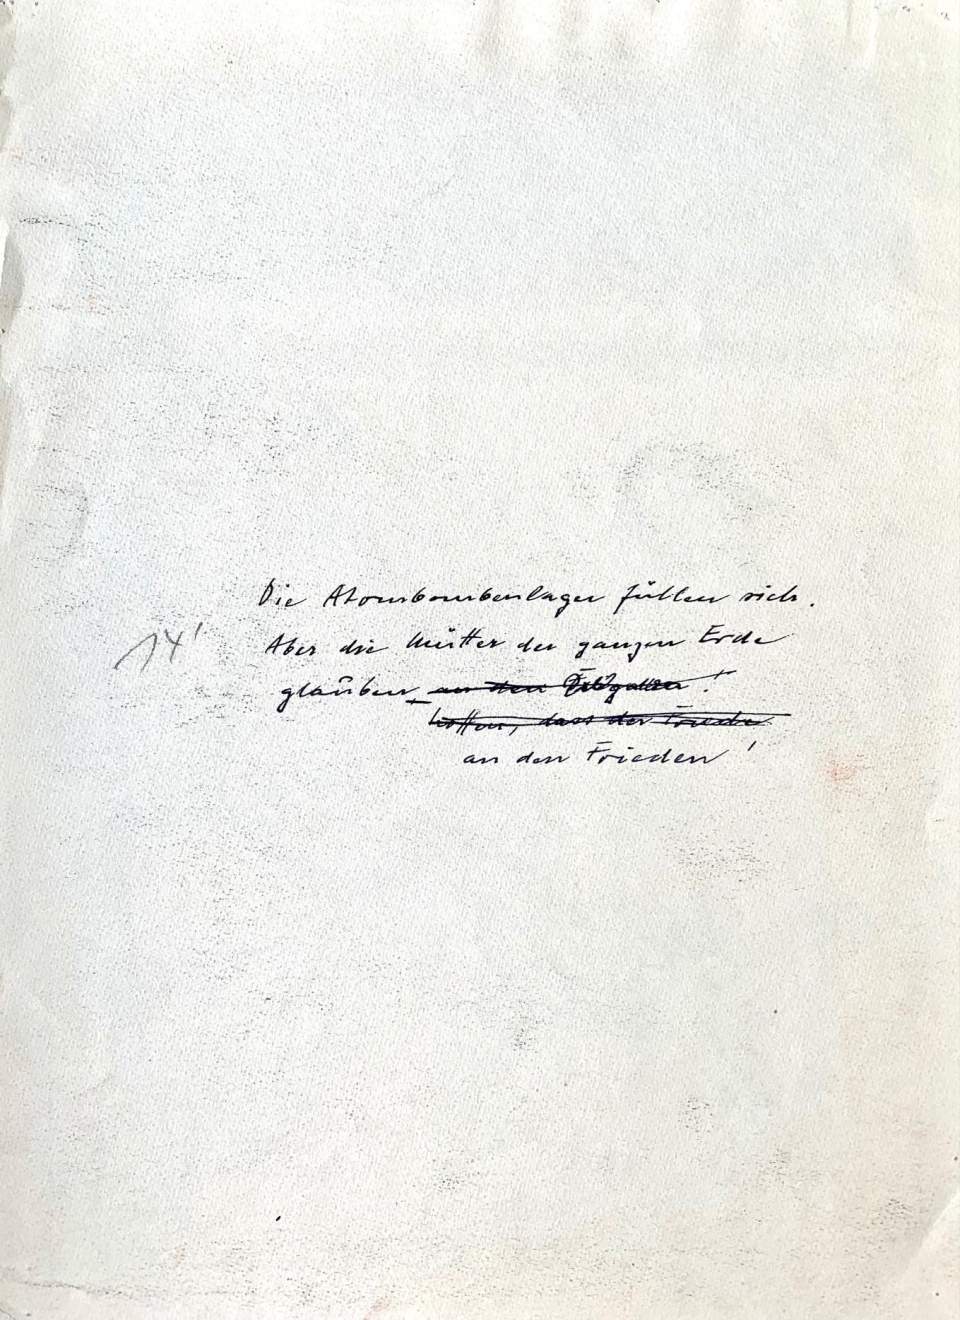 Die Atombombenlager füllen sich.
14'
Aber die Mütter der ganzen Erde
glauben an den !
hoffen, dass der Friede
an den Frieden !